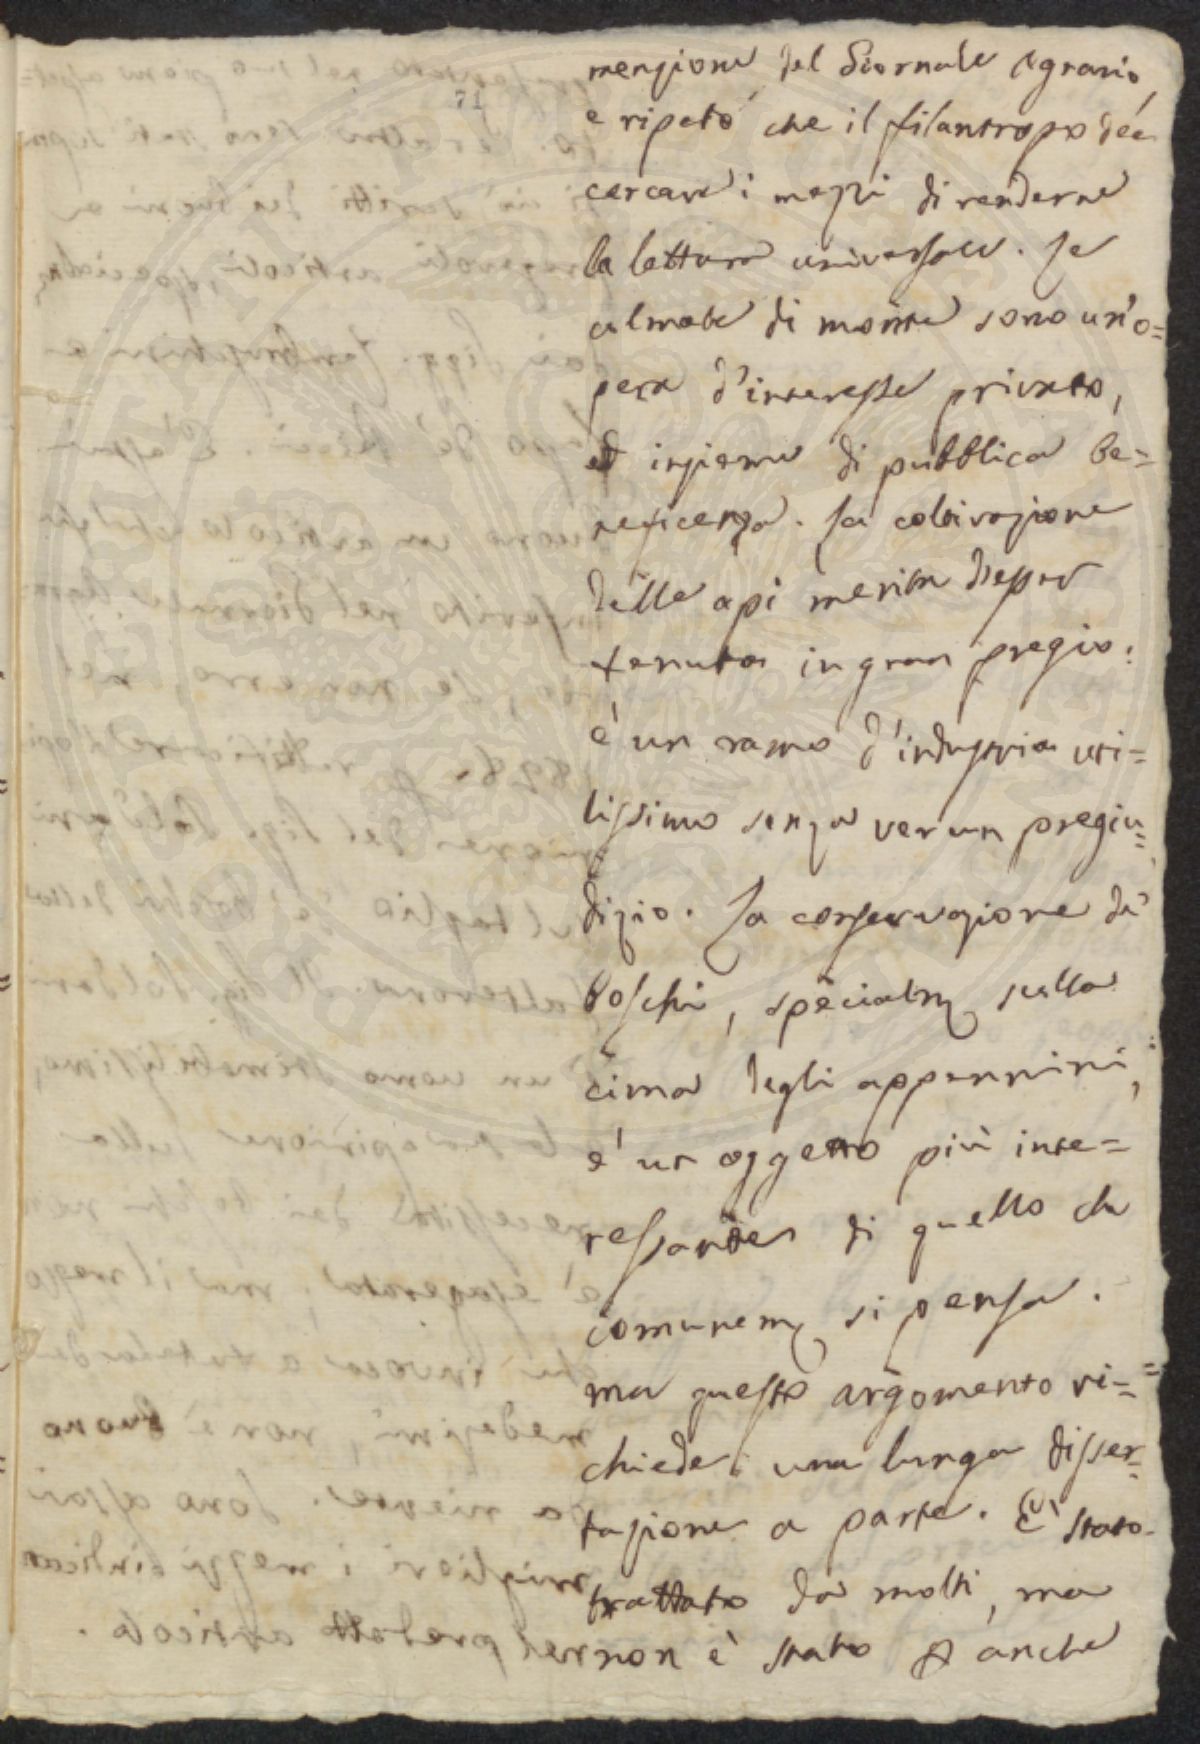 71
menzione del Giornale Agrario,
e ripeto che il filantropo dee
cercare i mezzi di renderne
la lettura universale. Le
culmate di monte sono un'o=
pera d'interesse privato,
ed insieme di pubblica be=
neficenza. La coltivazione
delle api merita d'esser
tenuta in gran pregio:
è un ramo d'industria uti=
lissimo senza verun pregiu=
dizio. La conservazione de'
boschi, specialm sulla
cima degli appennini,
è un oggetto più inte=
ressante di quello che
comunem si pensa.
ma questo argomento ri=
chiede una lunga disser=
tazione a parte. È stato
trattato da molti, ma
non è stato anche